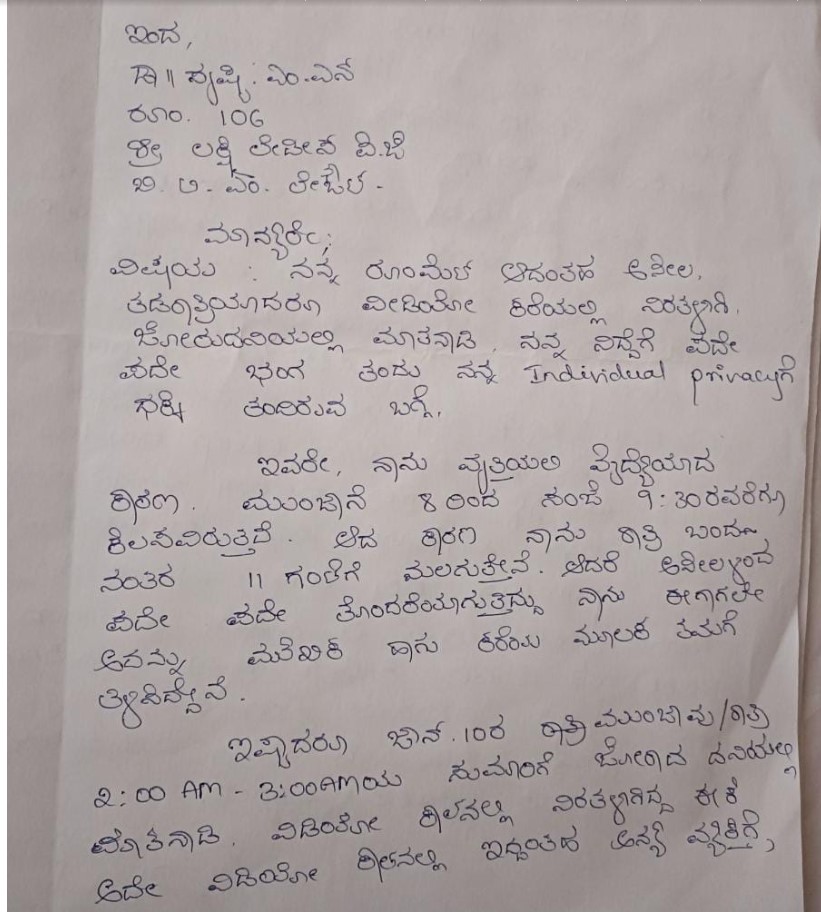 ಇಂದ,
ಡಾ|| ದೃಷ್ಟಿ. ಎಂ.ಎನ್
ರೂಂ. 106
ಶ್ರೀ ಲಕ್ಷ್ಮಿ ಲೇಡೀಸ್ ಪಿ.ಜಿ
ಬಿ. ಟಿ. ಎಂ. ಲೇಔಟ್.
ಮಾನ್ಯರೇ,
ವಿಷಯ : ನನ್ನ ರೂಂಮೇಟ್ ಆದಂತಹ
ತಡರಾತ್ರಿಯಾದರೂ ವೀಡಿಯೋ ಕರೆಯಲ್ಲಿ ನಿರತಳಾಗಿ,
ಜೋರುದನಿಯಲ್ಲಿ ಮಾತನಾಡಿ, ನನ್ನ ನಿದ್ದೆಗೆ ಪದೇ
ಪದೇ ಭಂಗ ತಂದು ನನ್ನ Individual privacyಗೆ
ಧಕ್ಕೆ ತಂದಿರುವ ಬಗ್ಗೆ.
ಇವರೇ, ನಾನು ವೃತ್ತಿಯಲಿ ವೈದ್ಯೆಯಾದ
ಕಾರಣ. ಮುಂಜಾನೆ 8 ರಿಂದ ಸಂಜೆ 9:30ರವರೆಗೂ
ಕೆಲಸವಿರುತ್ತದೆ. ಆದ ಕಾರಣ ನಾನು ರಾತ್ರಿ ಬಂದ
ನಂತರ 11 ಗಂಟೆಗೆ ಮಲಗುತ್ತೇನೆ. ಆದರೆ
ಪದೇ ಪದೇ ತೊಂದರೆಯಾಗುತ್ತಿದ್ದು ನಾನು ಈಗಾಗಲೇ
ಅದನ್ನು ಹಾಗು ಕರೆಯ ಮೂಲಕ ತಮಗೆ
ತಿಳಿಸಿದ್ದೇನೆ.
ಇಷ್ಟಾದರೂ ಜಾನ್.10ರ ರಾತ್ರಿ ಮುಂಜಾವು/ರಾತ್ರಿ
2:00 AM - 3:00AMಯ ಸುಮಾರಿಗೆ ಜೋರಾದ ದನಿಯಲ್ಲಿ
ಮಾತನಾಡಿ. ವಿಡಿಯೋ ಕಾಲನಲ್ಲಿ ನಿರತಳಾಗಿದ್ದ ಈಕೆ
ಅದೇ ವಿಡಿಯೋ ಕಾಲನಲ್ಲಿ ಇದ್ದಂತಹ ಅನ್ಯ ವ್ಯಕ್ತಿಗೆ,